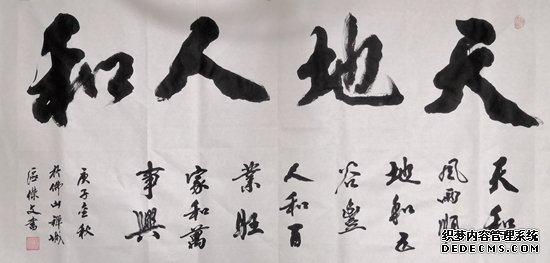 天地人和
天和
風雨順
地和五
谷豐
人和百
業旺
家和萬
事興
庚子金秋
於佛山禅城
傑文書
织梦内容管理系统
DEDECMS.COM